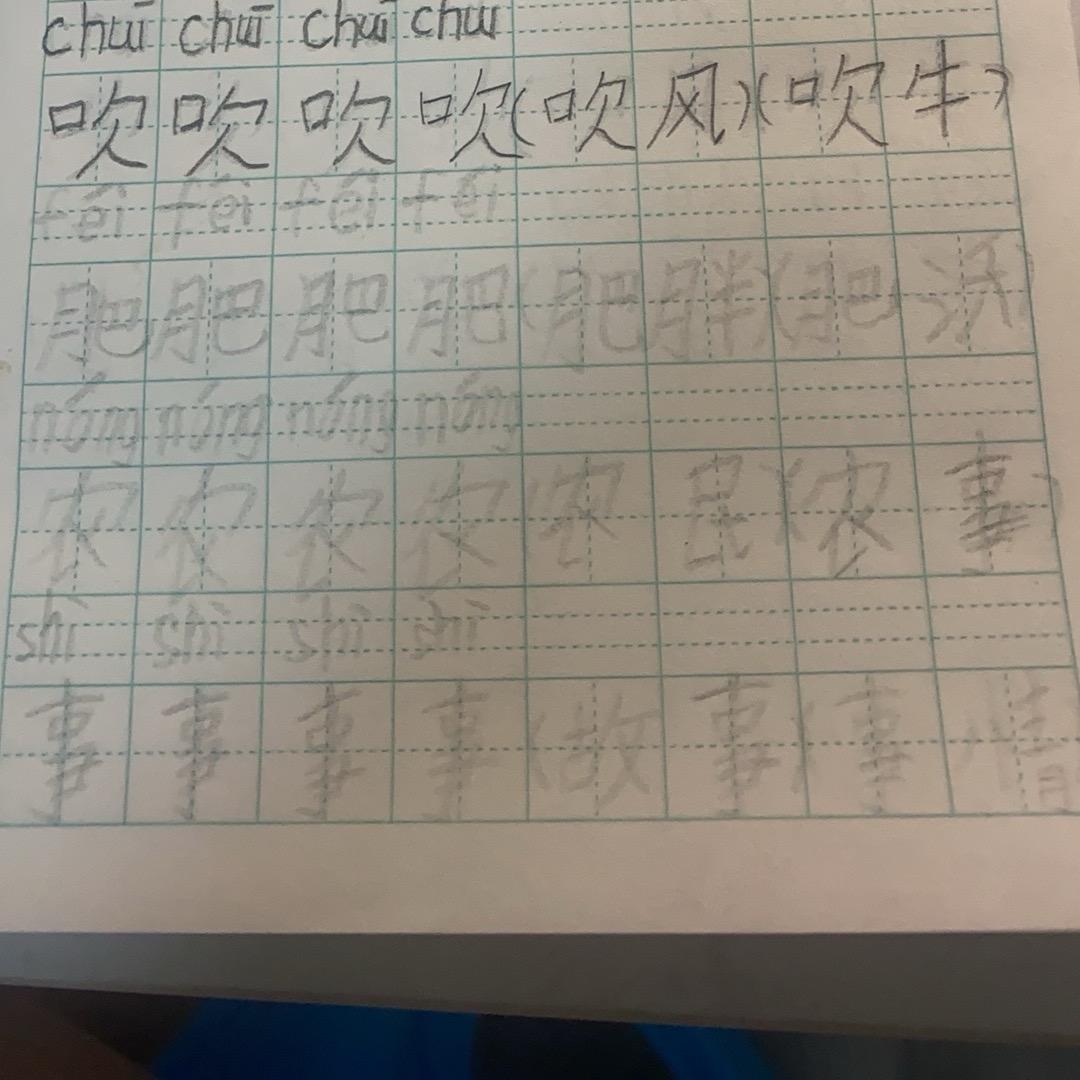 chuī chuī chuī chuī
吹 吹 吹 吹 (吹 风) (吹 牛)
féi féi féi féi
肥 肥 肥 肥 (肥 胖) (肥 沃)
nóng nóng nóng nóng
农 农 农 农 (农 民) (农 事)
shì shì shì shì
事 事 事 事 (故 事) (事 情